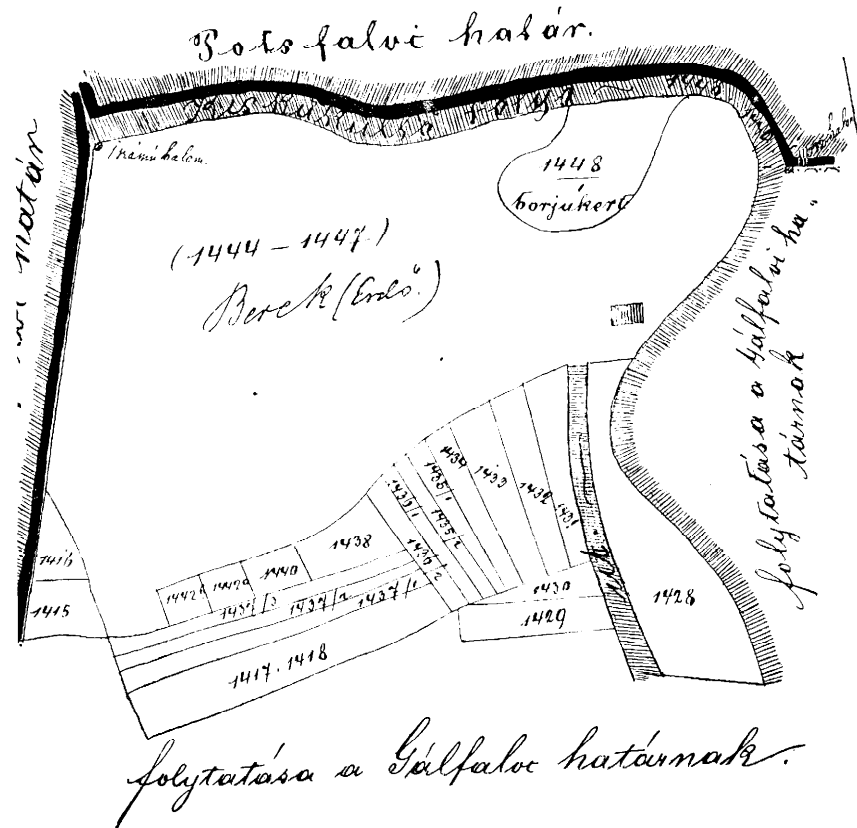 Potsfalvi határ.
Kis Küküllő folyó
1448
borjúkert
(1444 – 1447)
Berek (Erdő.)
folytatása a Gálfalvi ha„
tárnak
1434
1433
1432
1431
1435/1
1435/2
1436/1
1436/2
1438
1440
1416
1415
1437/3
1437/2
1437/1
1430
1429
1428
1417. 1418
folytatása a Gálfalvi határnak.